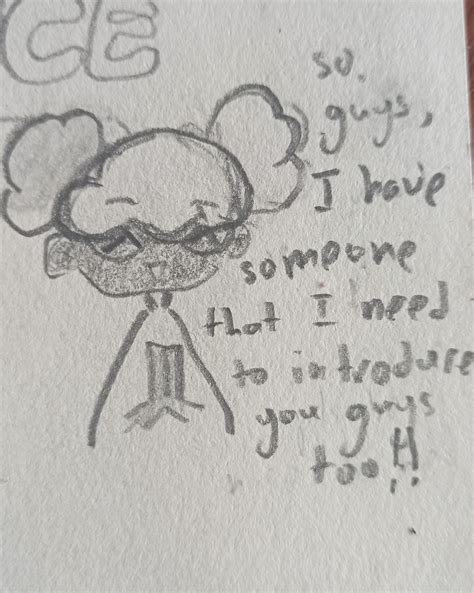 CE
so.
guys,
I have
someone
that I need
to introduce
you guys
too!!